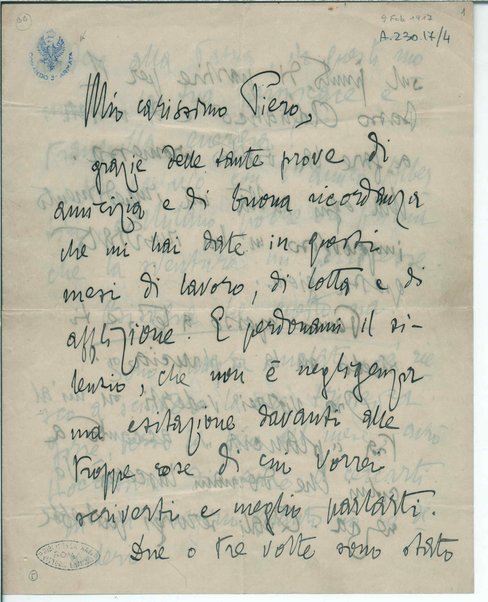 9 Feb 1917
1
A.230.17/4
Mio carissimo Piero,
grazie delle tante prove di
amicizia e di buona ricordanza
che mi hai date in questi
mesi di lavoro, di lotta e di
afflizione. E perdonami il si-
lenzio, che non è negligenza
ma esitazione davanti alle
troppe cose di cui vorrei
scriverti e meglio parlarti.
Due o tre volte sono stato